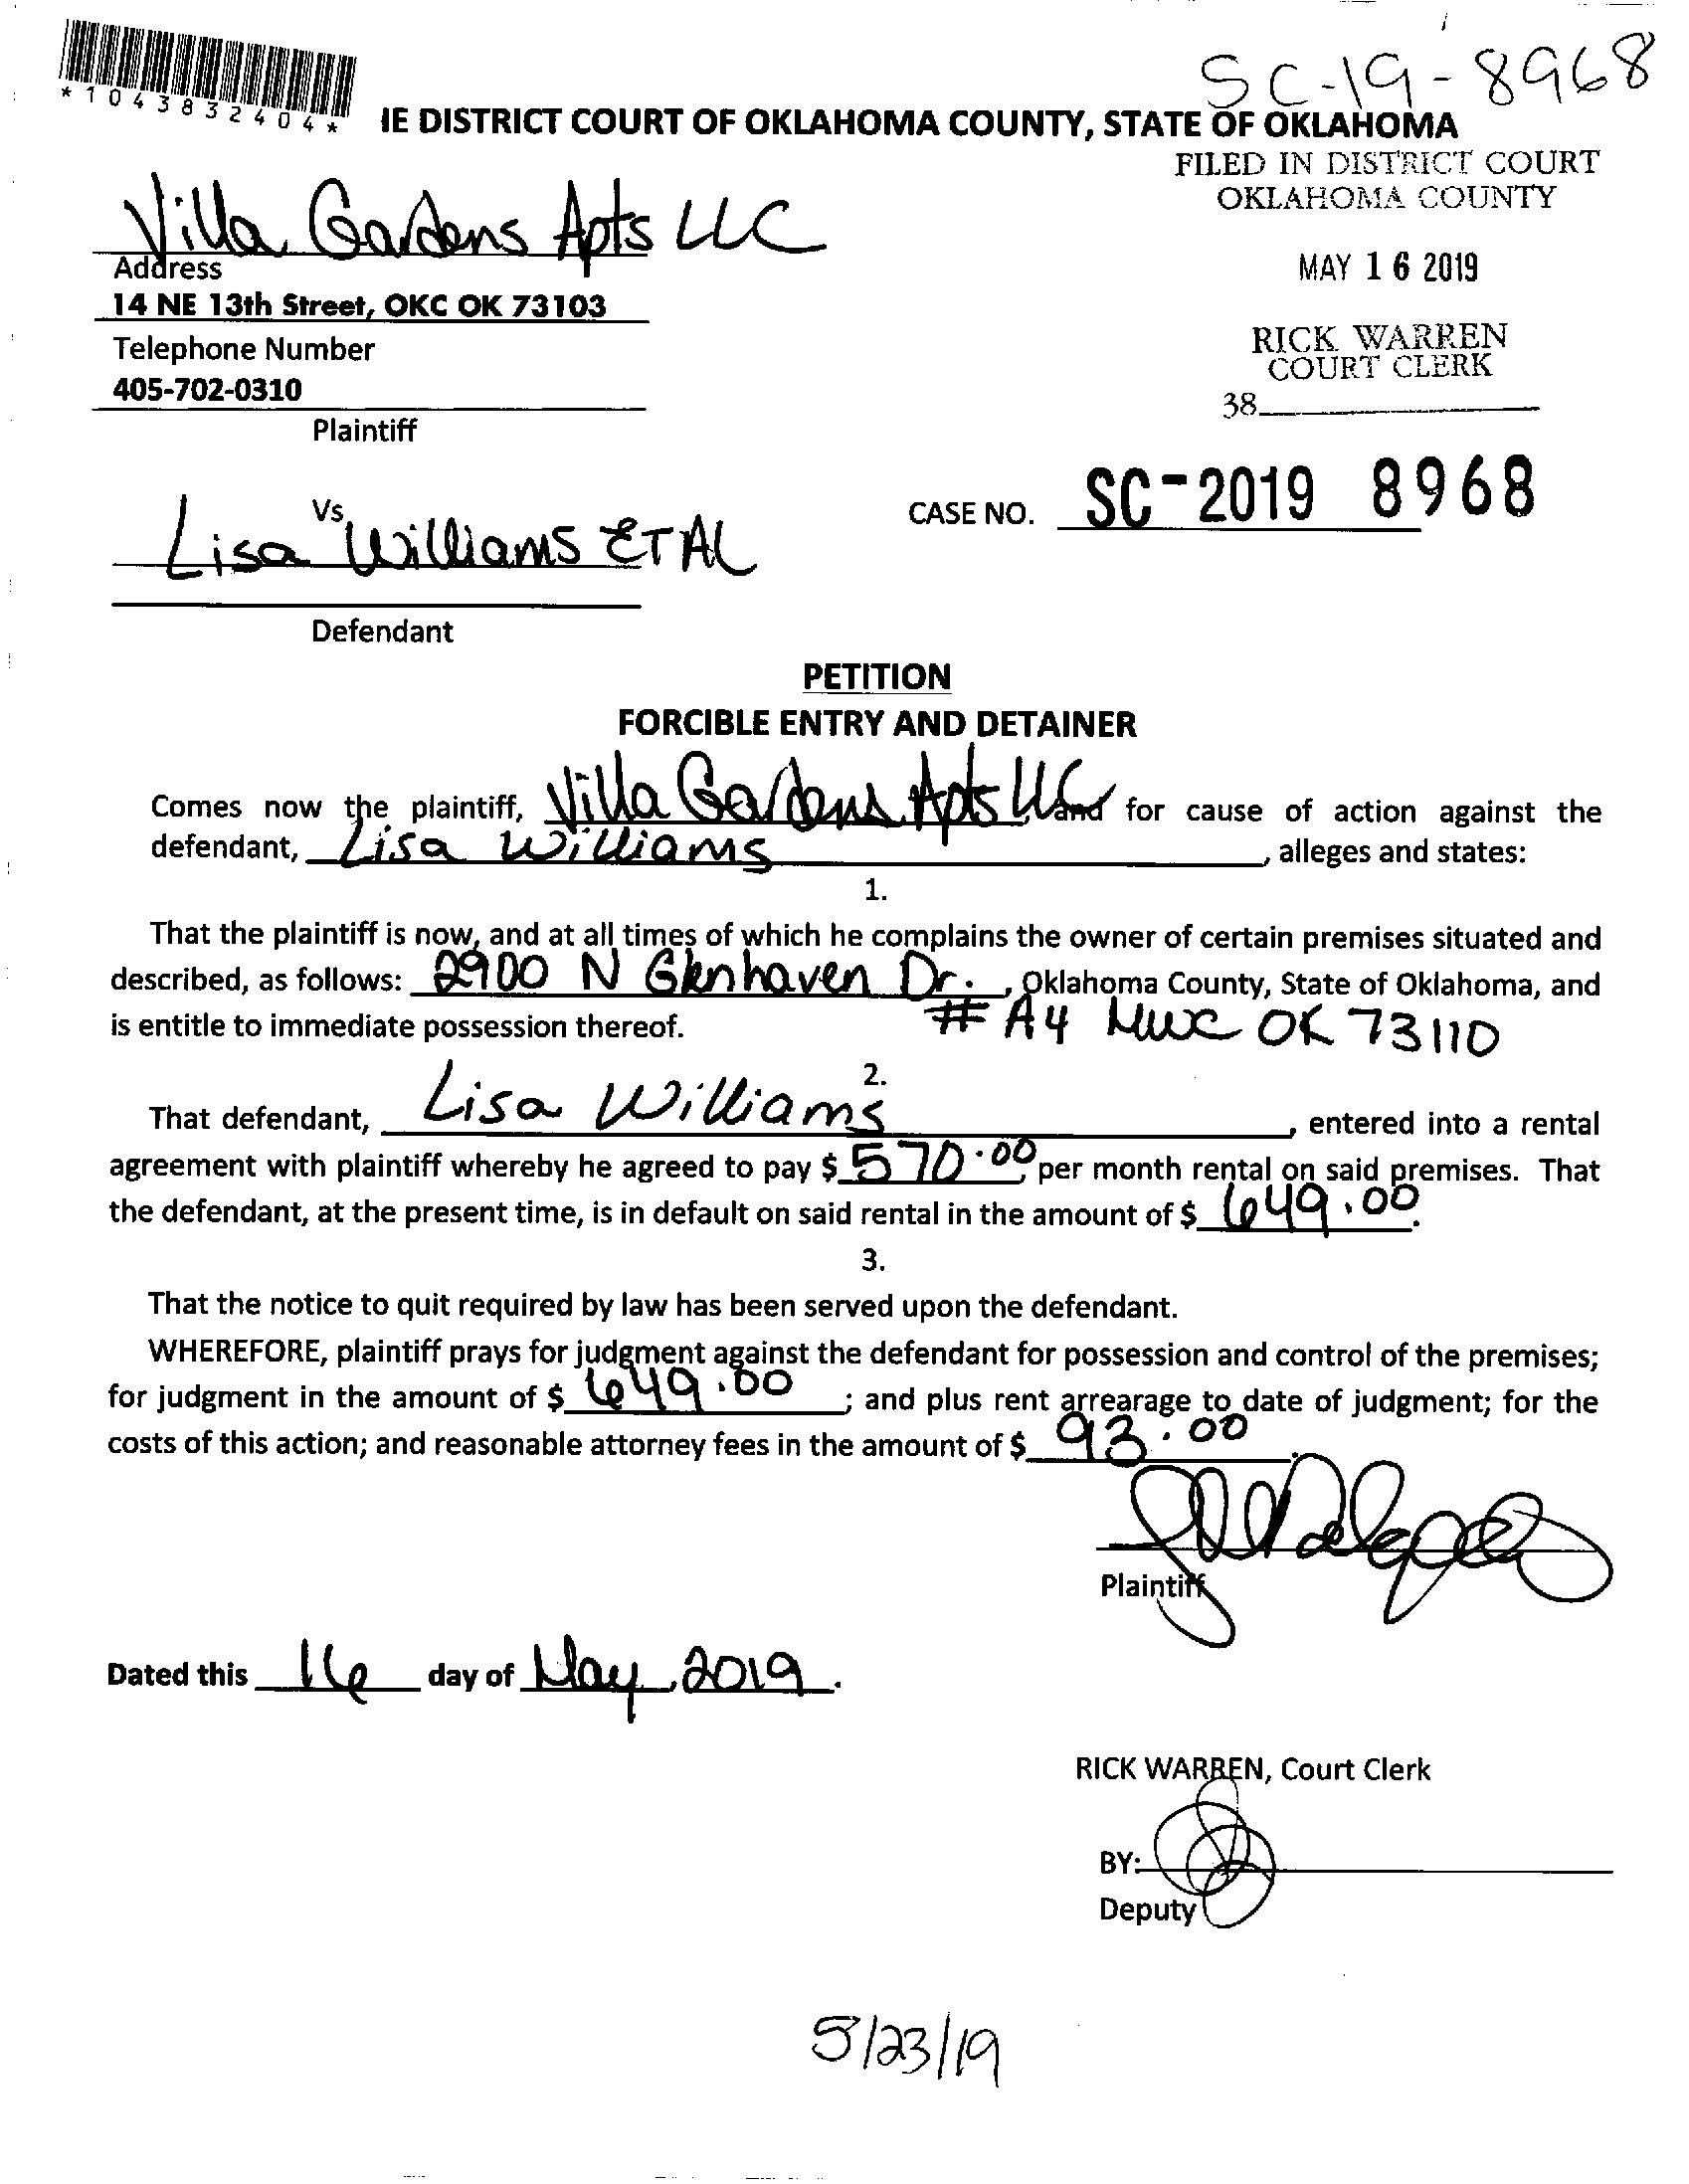 SC-19-8968
*1043832404*
IE DISTRICT COURT OF OKLAHOMA COUNTY, STATE OF OKLAHOMA
FILED IN DISTRICT COURT
OKLAHOMA COUNTY
MAY 16 2019
RICK WARREN
COURT CLERK
38
Villa Gardens Apts LLC
Address
14 NE 13th Street, OKC OK 73103
Telephone Number
405-702-0310
Plaintiff
Vs
Lisa Williams ET AL
Defendant
CASE NO. SC-2019 8968
PETITION
FORCIBLE ENTRY AND DETAINER
Comes now the plaintiff, Villa Gardens Apts LLC, and for cause of action against the
defendant, Lisa Williams, alleges and states:
1.
That the plaintiff is now, and at all times of which he complains the owner of certain premises situated and
described, as follows: 2900 N Glenhaven Dr., Oklahoma County, State of Oklahoma, and
is entitle to immediate possession thereof. # A4 MWC OK 73110
2.
That defendant, Lisa Williams, entered into a rental
agreement with plaintiff whereby he agreed to pay $ 570.00, per month rental on said premises. That
the defendant, at the present time, is in default on said rental in the amount of $ 649.00.
3.
That the notice to quit required by law has been served upon the defendant.
WHEREFORE, plaintiff prays for judgment against the defendant for possession and control of the premises;
for judgment in the amount of $ 649.00; and plus rent arrearage to date of judgment; for the
costs of this action; and reasonable attorney fees in the amount of $ 93.00.
Plaintiff
Dated this 16 day of May, 2019.
RICK WARREN, Court Clerk
BY:
Deputy
5/23/19